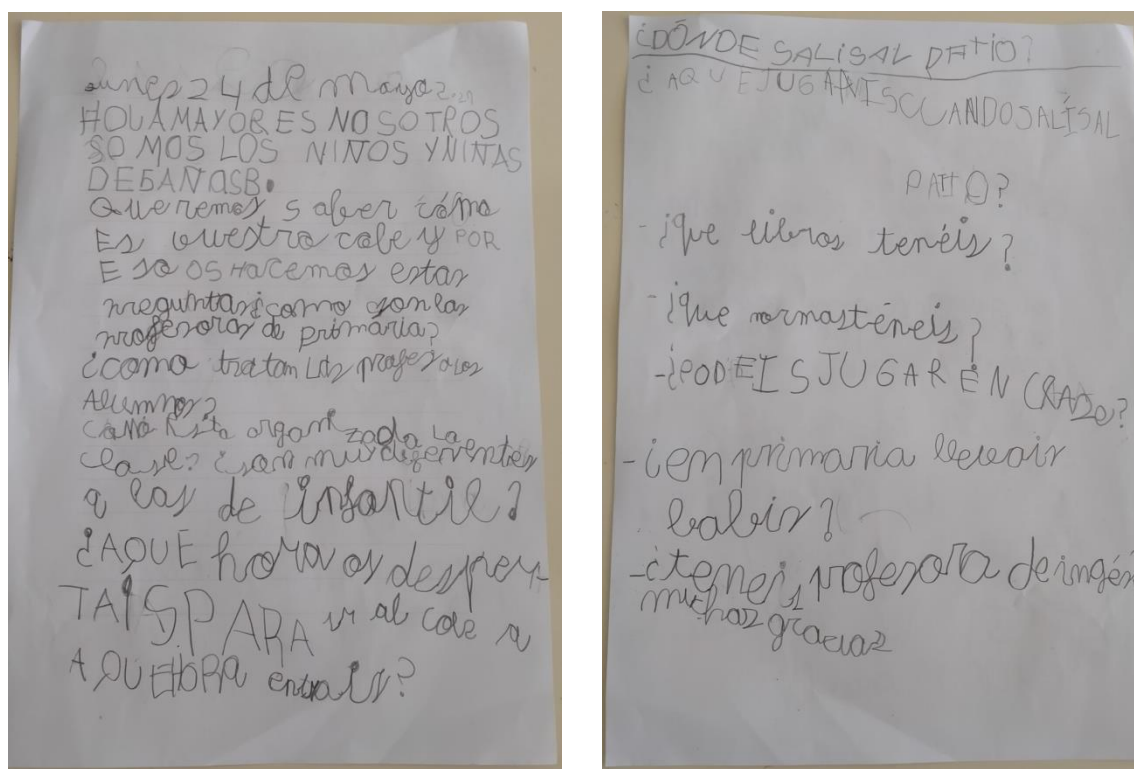 Lunes 24 de Mayo 2021
HOLA MAYORES NOSOTROS
SOMOS LOS NIÑOS Y NIÑAS
DE 5 AÑOS B.
Queremos saber cómo
Es vuestro cole y POR
Eso OS Hacemos estas
preguntas ¿como son las
profesoras de primária?
¿como tratan Los profes a los
Alumnos?
Como Esta organizada La
clase? ¿son muy diferentes
a las de infantil?
¿AQUÉ hora os desper-
TAÍS PARA ir al cole a
A QUE HORA entrais?
¿DÓNDE SALiSAL PATiO?
¿AQUE JUGAIS CUANDO SALÍSAL
PATIO?
- ¿Que libros tenéis?
- ¿Que normas ténéis?
-¿PODEIS JUGAR EN CLASE?
- ¿en primaria llevais
babis?
-¿teneis profesora de inglés
muchas gracias